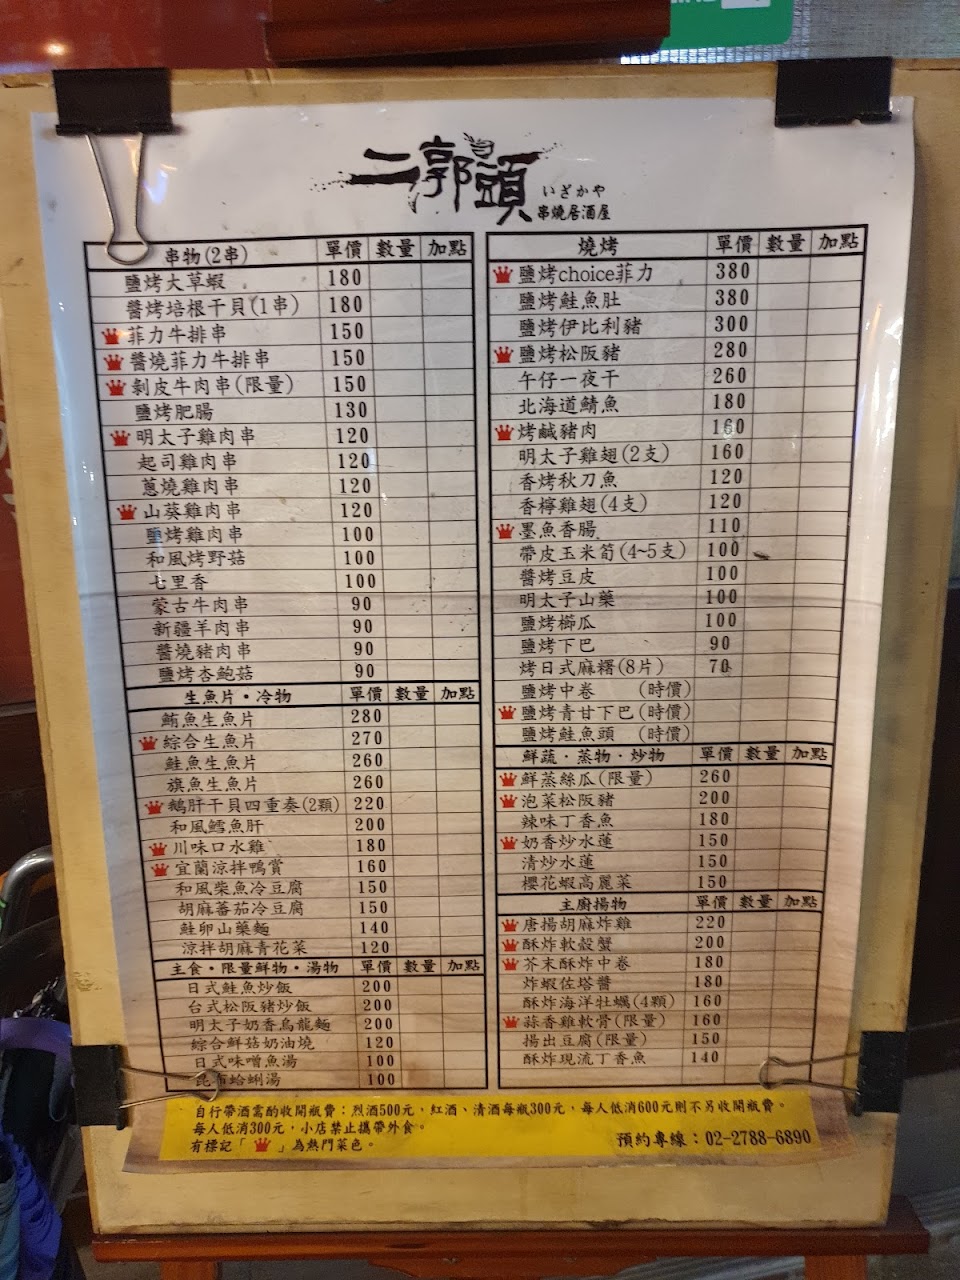 二郭頭
いざかや
串燒居酒屋
串物(2串) 單價 數量 加點
鹽烤大草蝦 180
醬烤培根干貝(1串) 180
菲力牛排串 150
醬燒菲力牛排串 150
剝皮牛肉串(限量) 150
鹽烤肥腸 130
明太子雞肉串 120
起司雞肉串 120
蔥燒雞肉串 120
山葵雞肉串 120
鹽烤雞肉串 100
和風烤野菇 100
七里香 100
蒙古牛肉串 90
新疆羊肉串 90
醬燒豬肉串 90
鹽烤杏鮑菇 90
生魚片·冷物 單價 數量 加點
鮪魚生魚片 280
綜合生魚片 270
鮭魚生魚片 260
旗魚生魚片 260
鵝肝干貝四重奏(2顆) 220
和風鱈魚肝 200
川味口水雞 180
宜蘭涼拌鴨賞 160
和風柴魚冷豆腐 150
胡麻蕃茄冷豆腐 150
鮭卵山藥麵 140
涼拌胡麻青花菜 120
主食·限量鮮物·湯物 單價 數量 加點
日式鮭魚炒飯 200
台式松阪豬炒飯 200
明太子奶香烏龍麵 200
綜合鮮菇奶油燒 120
日式味噌魚湯 100
昆布蛤蜊湯 100
燒烤 單價 數量 加點
鹽烤choice菲力 380
鹽烤鮭魚肚 380
鹽烤伊比利豬 300
鹽烤松阪豬 280
午仔一夜干 260
北海道鯖魚 180
烤鹹豬肉 160
明太子雞翅(2支) 160
香烤秋刀魚 120
香檸雞翅(4支) 120
墨魚香腸 110
帶皮玉米筍(4~5支) 100
醬烤豆皮 100
明太子山藥 100
鹽烤櫛瓜 100
鹽烤下巴 90
烤日式麻糬(8片) 70
鹽烤中卷 (時價)
鹽烤青甘下巴(時價)
鹽烤鮭魚頭 (時價)
鮮蔬·蒸物·炒物 單價 數量 加點
鮮蒸絲瓜(限量) 260
泡菜松阪豬 200
辣味丁香魚 180
奶香炒水蓮 150
清炒水蓮 150
櫻花蝦高麗菜 150
主廚揚物 單價 數量 加點
唐揚胡麻炸雞 220
酥炸軟殼蟹 200
芥末酥炸中卷 180
炸蝦佐塔醬 180
酥炸海洋牡蠣(4顆) 160
蒜香雞軟骨(限量) 160
揚出豆腐(限量) 150
酥炸現流丁香魚 140
自行帶酒需酌收開瓶費：烈酒500元、紅酒、清酒每瓶300元，每人低消600元則不另收開瓶費。
每人低消300元，小店禁止攜帶外食。
有標記「 」為熱門菜色。
預約專線：02-2788-6890